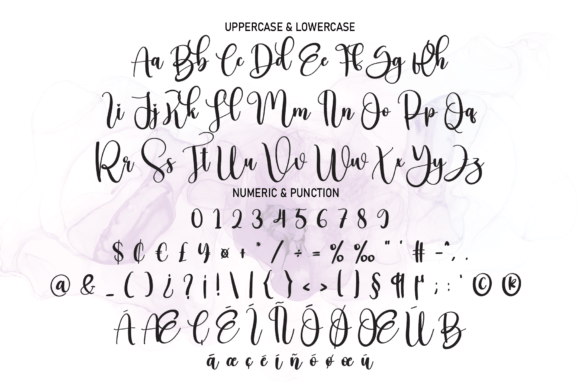 UPPERCASE & LOWERCASE
Aa Bb Cc Dd Ee Ff Gg Hh
Ii Jj Kk Ll Mm Nn Oo Pp Qq
Rr Ss Tt Uu Vv Ww Xx Yy Zz
NUMERIC & PUNCTION
0 1 2 3 4 5 6 7 8 9
$ ₵ € £ ¥ ¤ + * / ÷ = % ‰ " ' # - ~ , .
@ & _ ( ) ¿ ? ¡ ! \ | { } < > [ ] § ¶ µ ; : ' © ®
Á Æ Ç É Í Ñ Ó Ø Œ Ú ẞ
á æ ç é í ñ ó ø œ ú